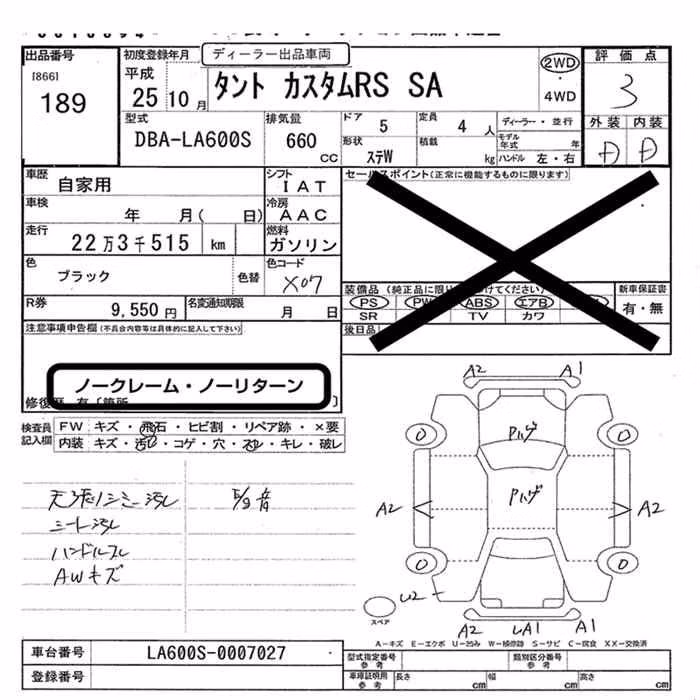 出品番号
[866]
189
初度登録年月
ディーラー出品車両
平成
25 10 月
タント カスタムRS SA
2WD
4WD
評価点
3
型式
DBA-LA600S
排気量
660
CC
ドア
5
定員
4 人
ディーラー・並行
モデル年式 年
形状
ステW
積載
kg
ハンドル 左・右
外装 内装
車歴
自家用
シフト
IAT
セールスポイント(正常に機能するものに限ります)
車検
年 月( 日)
冷房
AAC
走行
22万3千515 km
燃料
ガソリン
色
ブラック
色替
色コード
X07
装備品 (純正品に限り けてください)
新車保証書
PS PW ABS エアB
有・無
SR TV カワ
R券
9,550 円
名変通知期限
月 日
後日品
注意事項申告欄(不具合内容等は具体的に記入して下さい)
ノークレーム・ノーリターン
修復歴 有〔箇所 〕
検査員記入欄
FW キズ・飛石・ヒビ割・リペア跡・×要
内装 キズ・汚れ・コゲ・穴・スレ・キレ・破レ
シート汚レ
AWキズ
A2 A1
Pハゲ
0 0
Pハゲ
A2 A2
0 0
U2
スペア
A2 A1
A-キズ E-エクボ U-凹み W-補修跡 S-サビ C-腐食 XX-交換済
車台番号
LA600S-0007027
登録番号
型式指定番号 参考
類別区分番号 参考
車庫証明用 参考
長さ cm
幅 cm
高さ cm